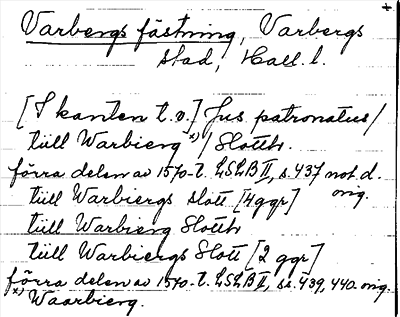 Varbergs fästning, Varbergs
stad, Hall. l.
[I kanten t.v.] Jus patronatus/
tiill Warbierg x)/ Slotth
förra delen av 1570-t. LSLB II, s. 437 not. d.
orig.
tiill Warbiergs slott [4 ggr]
tiill Warbierg Slotth
tiill Warbiergs Slott [2 ggr]
förra delen av 1570-t. LSLB II, ss. 439, 440. orig.
x) Waarbierg.